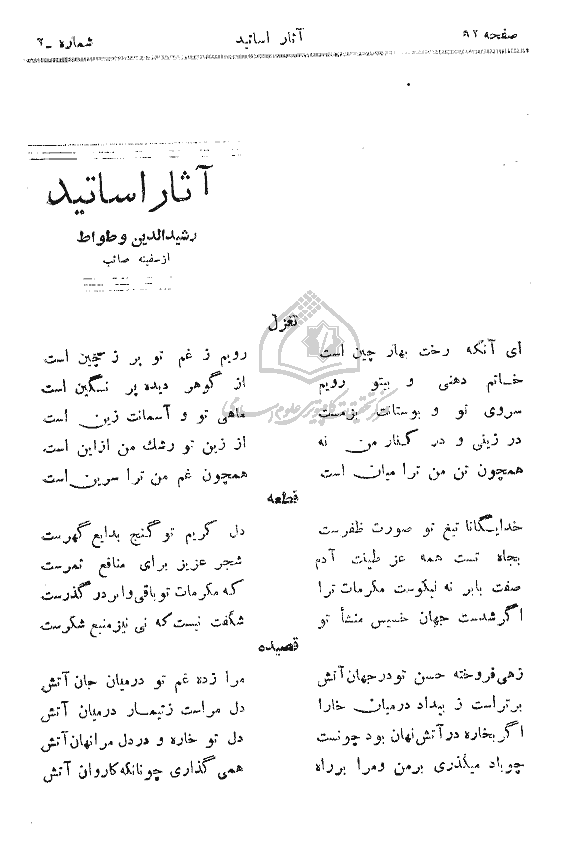 صفحه ۹۲ آثار اساتید شماره ـ ۲
آثار اساتید
رشیدالدین وطواط
از سفینه صائب
تغزل
ای آنکه رخت بهار چین است رویم ز غم تو پر ز چین است
خاتم دهنی و بیتو رویم از گوهر دیده پر نگین است
سروی تو و بوستانت بزمست ماهی تو و آسمانت زین است
در زینی و در کنار من نه از زین تو رشك من ازاین است
همچون تن من ترا میان است همچون غم من ترا سرین است
قطعه
خدایگانا تیغ تو صورت ظفرست دل کریم تو گنج بدایع گهرست
بجاه تست همه عز طینت آدم شجر عزیز برای منافع ثمرست
صفت بابر نه نیکوست مکرمات ترا که مکرمات تو باقی وابر در گذرست
اگر شدست جهان خسیس منشأ تو شگفت نیست که نی نیز منبع شکرست
قصیده
زهی فروخته حسن تو در جهان آتش مرا زده غم تو درمیان جان آتش
برتر است ز بیداد درمیان خارا دل مراست ز تیمار درمیان آتش
اگر بخاره در آتش نهان بود چونست دل تو خاره و در دل مرا نهان آتش
چو باد میگذری بر من ومرا بر راه همی گذاری چونانکه کاروان آتش